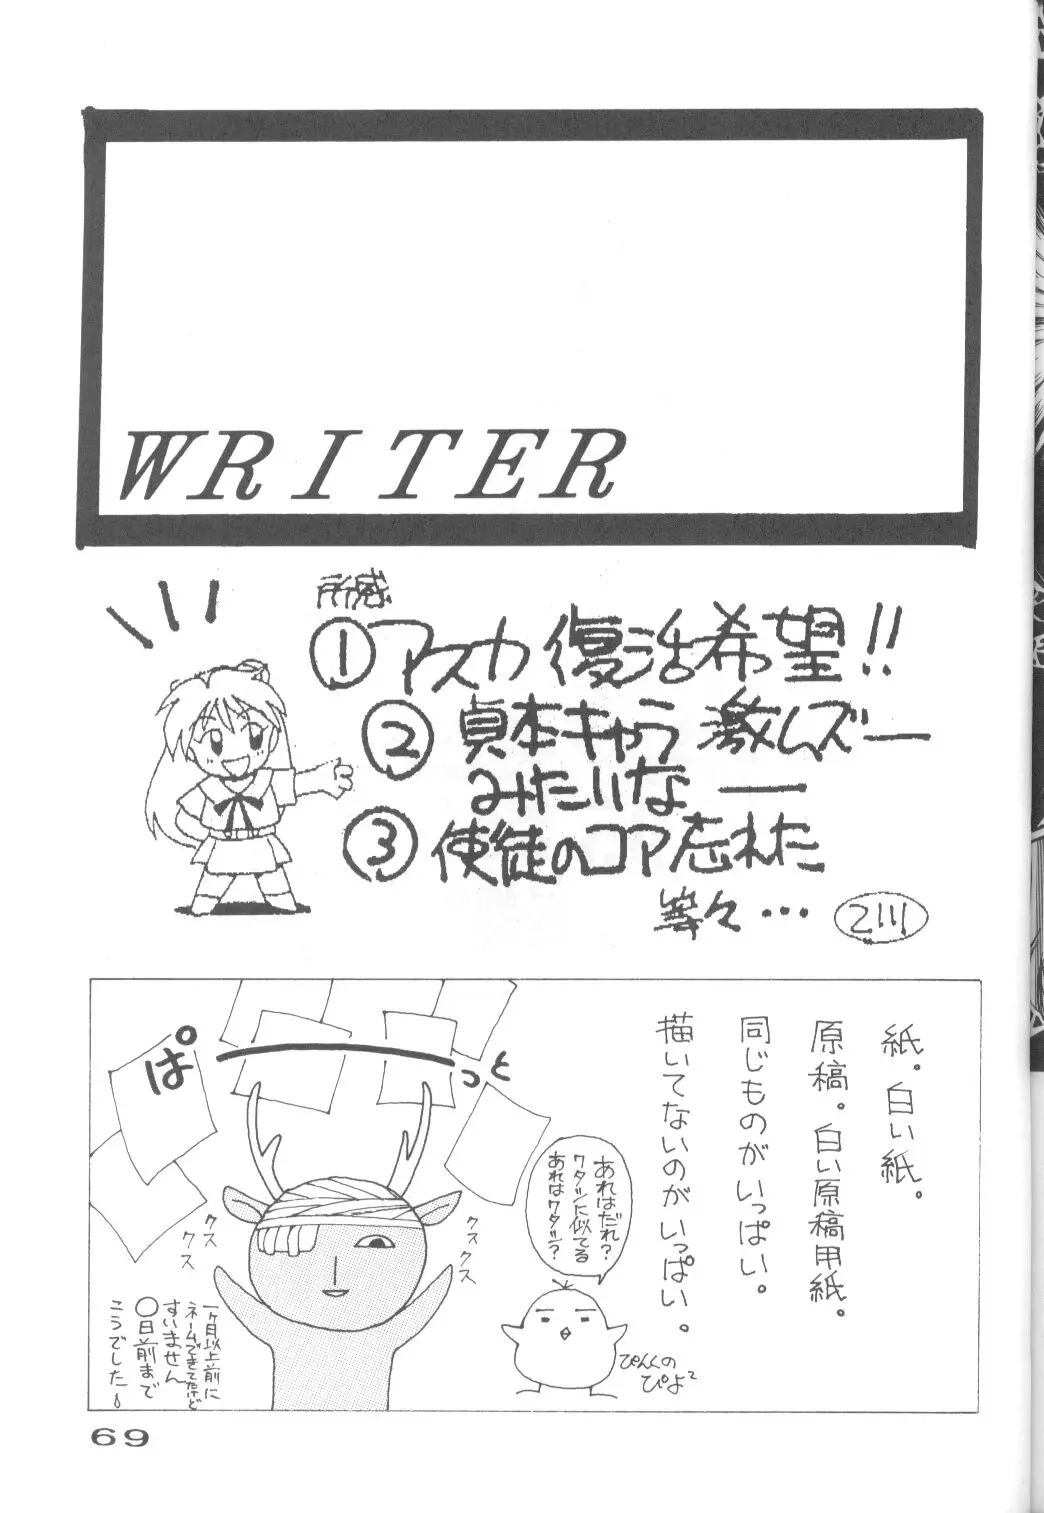 WRITER
所感
①アスカ復活希望!!
②貞本キャラ激ムズー
みたいなー
③使徒のコア忘れた
等々…
紙。白い紙。
原稿。白い原稿用紙。
同じものがいっぱい。
描いてないのがいっぱい。
ぱーっと
あれはだれ?
ワタシに似てる
あれはワタシ?
ぴんくの
ぴよ²
クス
クス
クス
クスクス
一ヶ月以上前に
ネームできてたけど
すいません
〇日前まで
こうでした
69